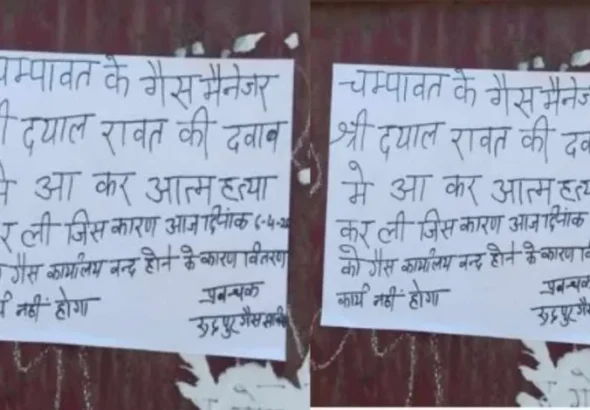 म्पावत के गैस मैनेजर
दयाल रावत की दवाब
आ कर आत्महत्या
ली जिस कारण आज दिनांक 6-4-2
गैस कार्यालय बन्द होने के कारण वितरण
नहीं होगा
प्रबन्धक
रुद्रपुर गैस
चम्पावत के गैस मैनेज
श्री दयाल रावत की दव
मे आ कर आत्महत्य
कर ली जिस कारण आज दिनांक
को गैस कार्यालय बन्द होने के कारण वि
कार्य नहीं होगा
प्रबन्धक
रुद्रपुर गैस